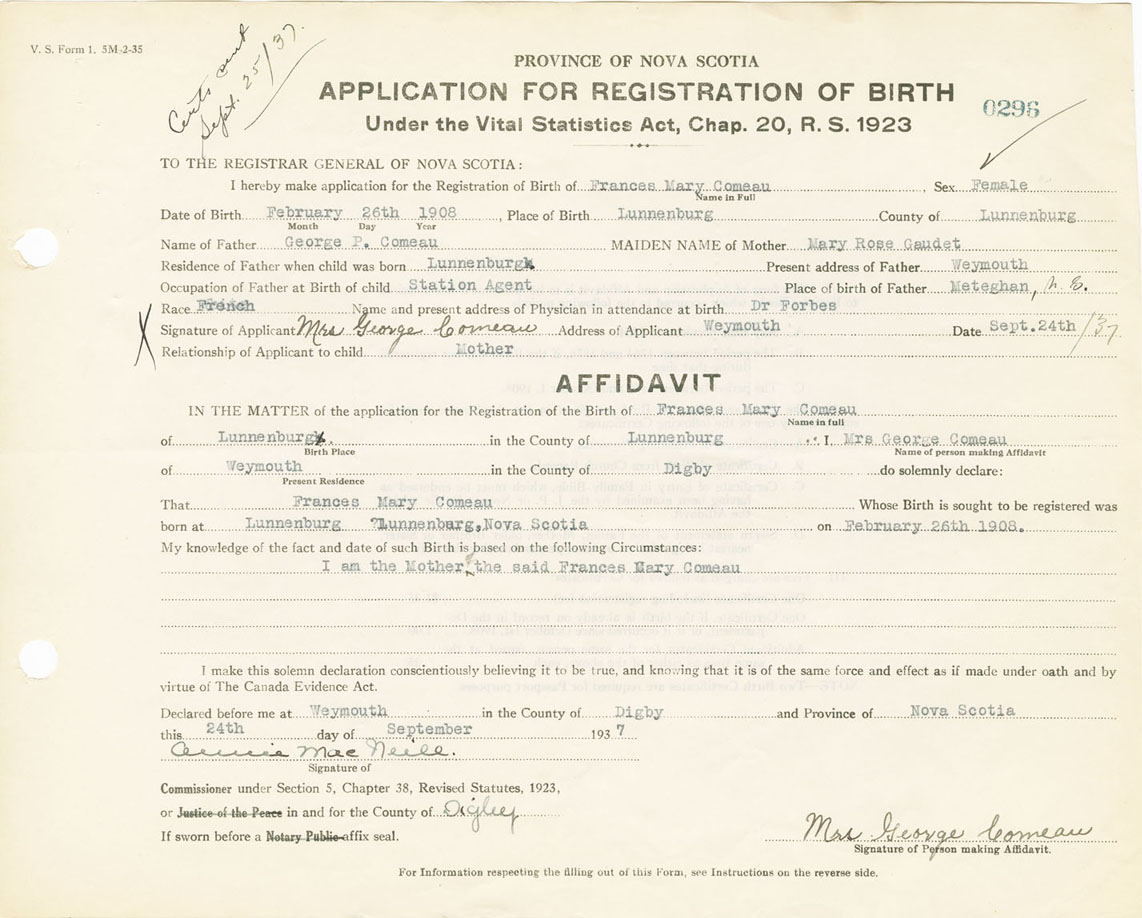 V. S. Form 1. 5M-2-35
Certs sent
Sept. 25/37.
PROVINCE OF NOVA SCOTIA
APPLICATION FOR REGISTRATION OF BIRTH
0296
Under the Vital Statistics Act, Chap. 20, R. S. 1923
TO THE REGISTRAR GENERAL OF NOVA SCOTIA:
I hereby make application for the Registration of Birth of Frances Mary Comeau, Sex Female
Name in Full
Date of Birth February 26th 1908, Place of Birth Lunnenburg County of Lunnenburg
Month Day Year
Name of Father George P. Comeau MAIDEN NAME of Mother Mary Rose Gaudet
Residence of Father when child was born Lunnenburg Present address of Father Weymouth
Occupation of Father at Birth of child Station Agent Place of birth of Father Meteghan, N. S.
Race French Name and present address of Physician in attendance at birth Dr Forbes
X Signature of Applicant Mrs George Comeau Address of Applicant Weymouth Date Sept. 24th /37.
Relationship of Applicant to child Mother
AFFIDAVIT
IN THE MATTER of the application for the Registration of the Birth of Frances Mary Comeau
Name in full
of Lunnenburg. in the County of Lunnenburg I, Mrs George Comeau
Birth Place Name of person making Affidavit
of Weymouth in the County of Digby do solemnly declare:
Present Residence
That Frances Mary Comeau Whose Birth is sought to be registered was
born at Lunnenburg ?Lunnenburg, Nova Scotia on February 26th 1908.
My knowledge of the fact and date of such Birth is based on the following Circumstances:
I am the Mother, the said Frances Mary Comeau
I make this solemn declaration conscientiously believing it to be true, and knowing that it is of the same force and effect as if made under oath and by
virtue of The Canada Evidence Act.
Declared before me at Weymouth in the County of Digby and Province of Nova Scotia
this 24th day of September 1937
Annie MacNeill.
Signature of
Commissioner under Section 5, Chapter 38, Revised Statutes, 1923,
or Justice of the Peace in and for the County of Digby
If sworn before a Notary Public affix seal.
Mrs George Comeau
Signature of Person making Affidavit.
For Information respecting the filling out of this Form, see Instructions on the reverse side.